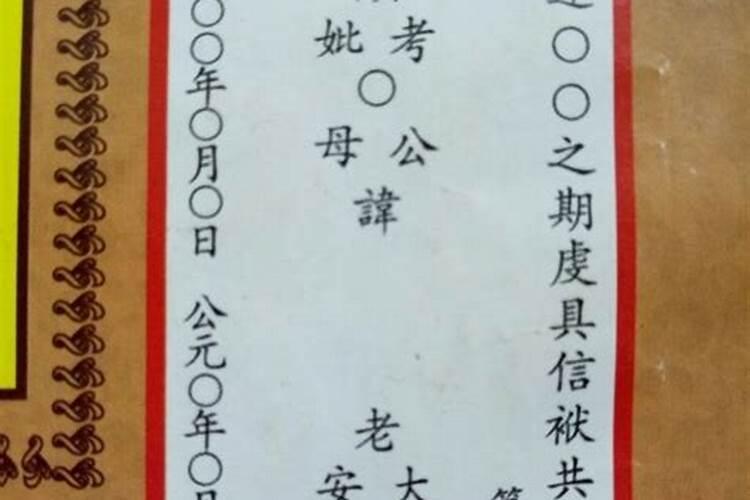 〇〇之期虔具信袱共
考
妣
〇
公
母
諱
老
大
安
〇〇年〇月〇日 公元〇年〇